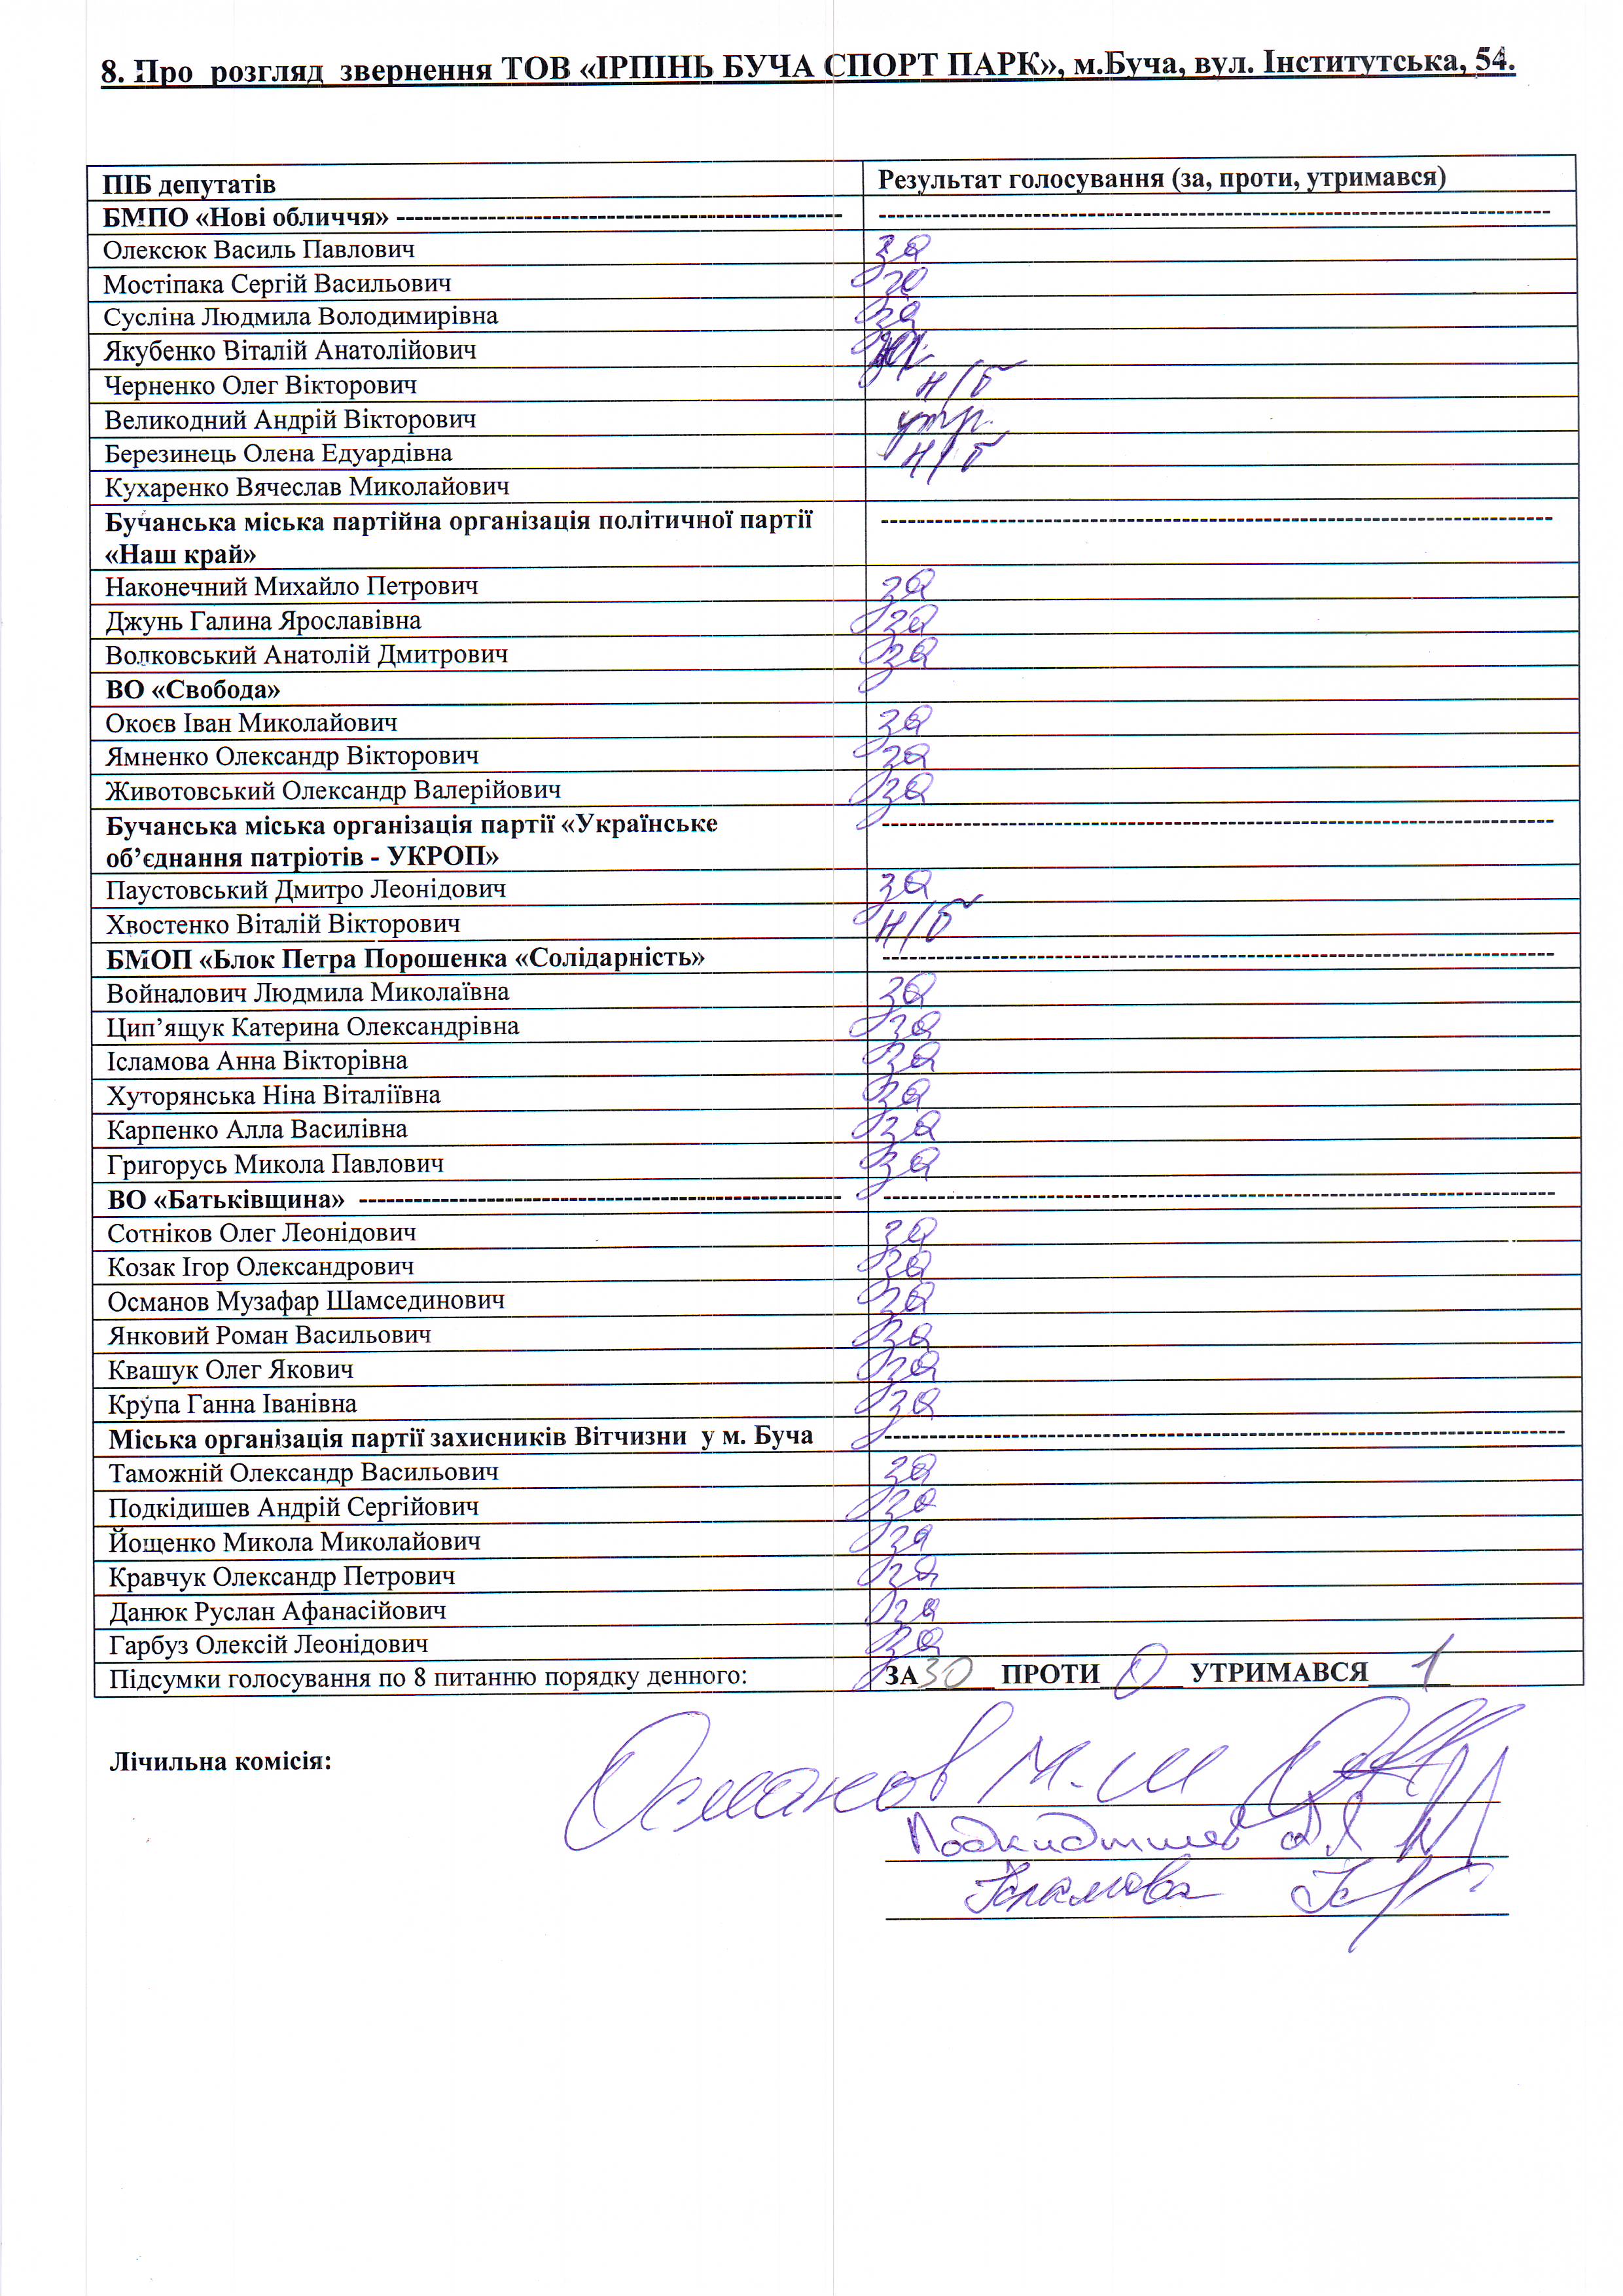 8. Про розгляд звернення ТОВ «ІРПІНЬ БУЧА СПОРТ ПАРК», м.Буча, вул. Інститутська, 54.
ПІБ депутатів Результат голосування (за, проти, утримався)
БМПО «Нові обличчя» --------------------------------------------------- ---------------------------------------------------------------------------
Олексюк Василь Павлович за
Мостіпака Сергій Васильович за
Сусліна Людмила Володимирівна за
Якубенко Віталій Анатолійович
Черненко Олег Вікторович н/б
Великодний Андрій Вікторович утр.
Березинець Олена Едуардівна н/б
Кухаренко Вячеслав Миколайович
Бучанська міська партійна організація політичної партії ---------------------------------------------------------------------------
«Наш край»
Наконечний Михайло Петрович за
Джунь Галина Ярославівна за
Волковський Анатолій Дмитрович за
ВО «Свобода»
Окоєв Іван Миколайович за
Ямненко Олександр Вікторович за
Животовський Олександр Валерійович за
Бучанська міська організація партії «Українське ---------------------------------------------------------------------------
об’єднання патріотів - УКРОП»
Паустовський Дмитро Леонідович за
Хвостенко Віталій Вікторович н/б
БМОП «Блок Петра Порошенка «Солідарність» ---------------------------------------------------------------------------
Войналович Людмила Миколаївна за
Цип’ящук Катерина Олександрівна за
Ісламова Анна Вікторівна за
Хуторянська Ніна Віталіївна за
Карпенко Алла Василівна за
Григорусь Микола Павлович за
ВО «Батьківщина» ------------------------------------------------------- ---------------------------------------------------------------------------
Сотніков Олег Леонідович за
Козак Ігор Олександрович за
Османов Музафар Шамсединович за
Янковий Роман Васильович за
Квашук Олег Якович за
Крупа Ганна Іванівна за
Міська організація партії захисників Вітчизни у м. Буча ----------------------------------------------------------------------------
Таможній Олександр Васильович за
Подкідишев Андрій Сергійович за
Йощенко Микола Миколайович за
Кравчук Олександр Петрович за
Данюк Руслан Афанасійович за
Гарбуз Олексій Леонідович за
Підсумки голосування по 8 питанню порядку денного: ЗА 30 ПРОТИ 0 УТРИМАВСЯ 1
Лічильна комісія:
Османов М. Ш